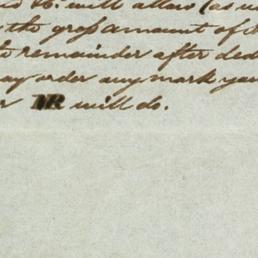 will allow (as u
the gross amount of
remainder after ded
ay order any mark you
r IR will do.